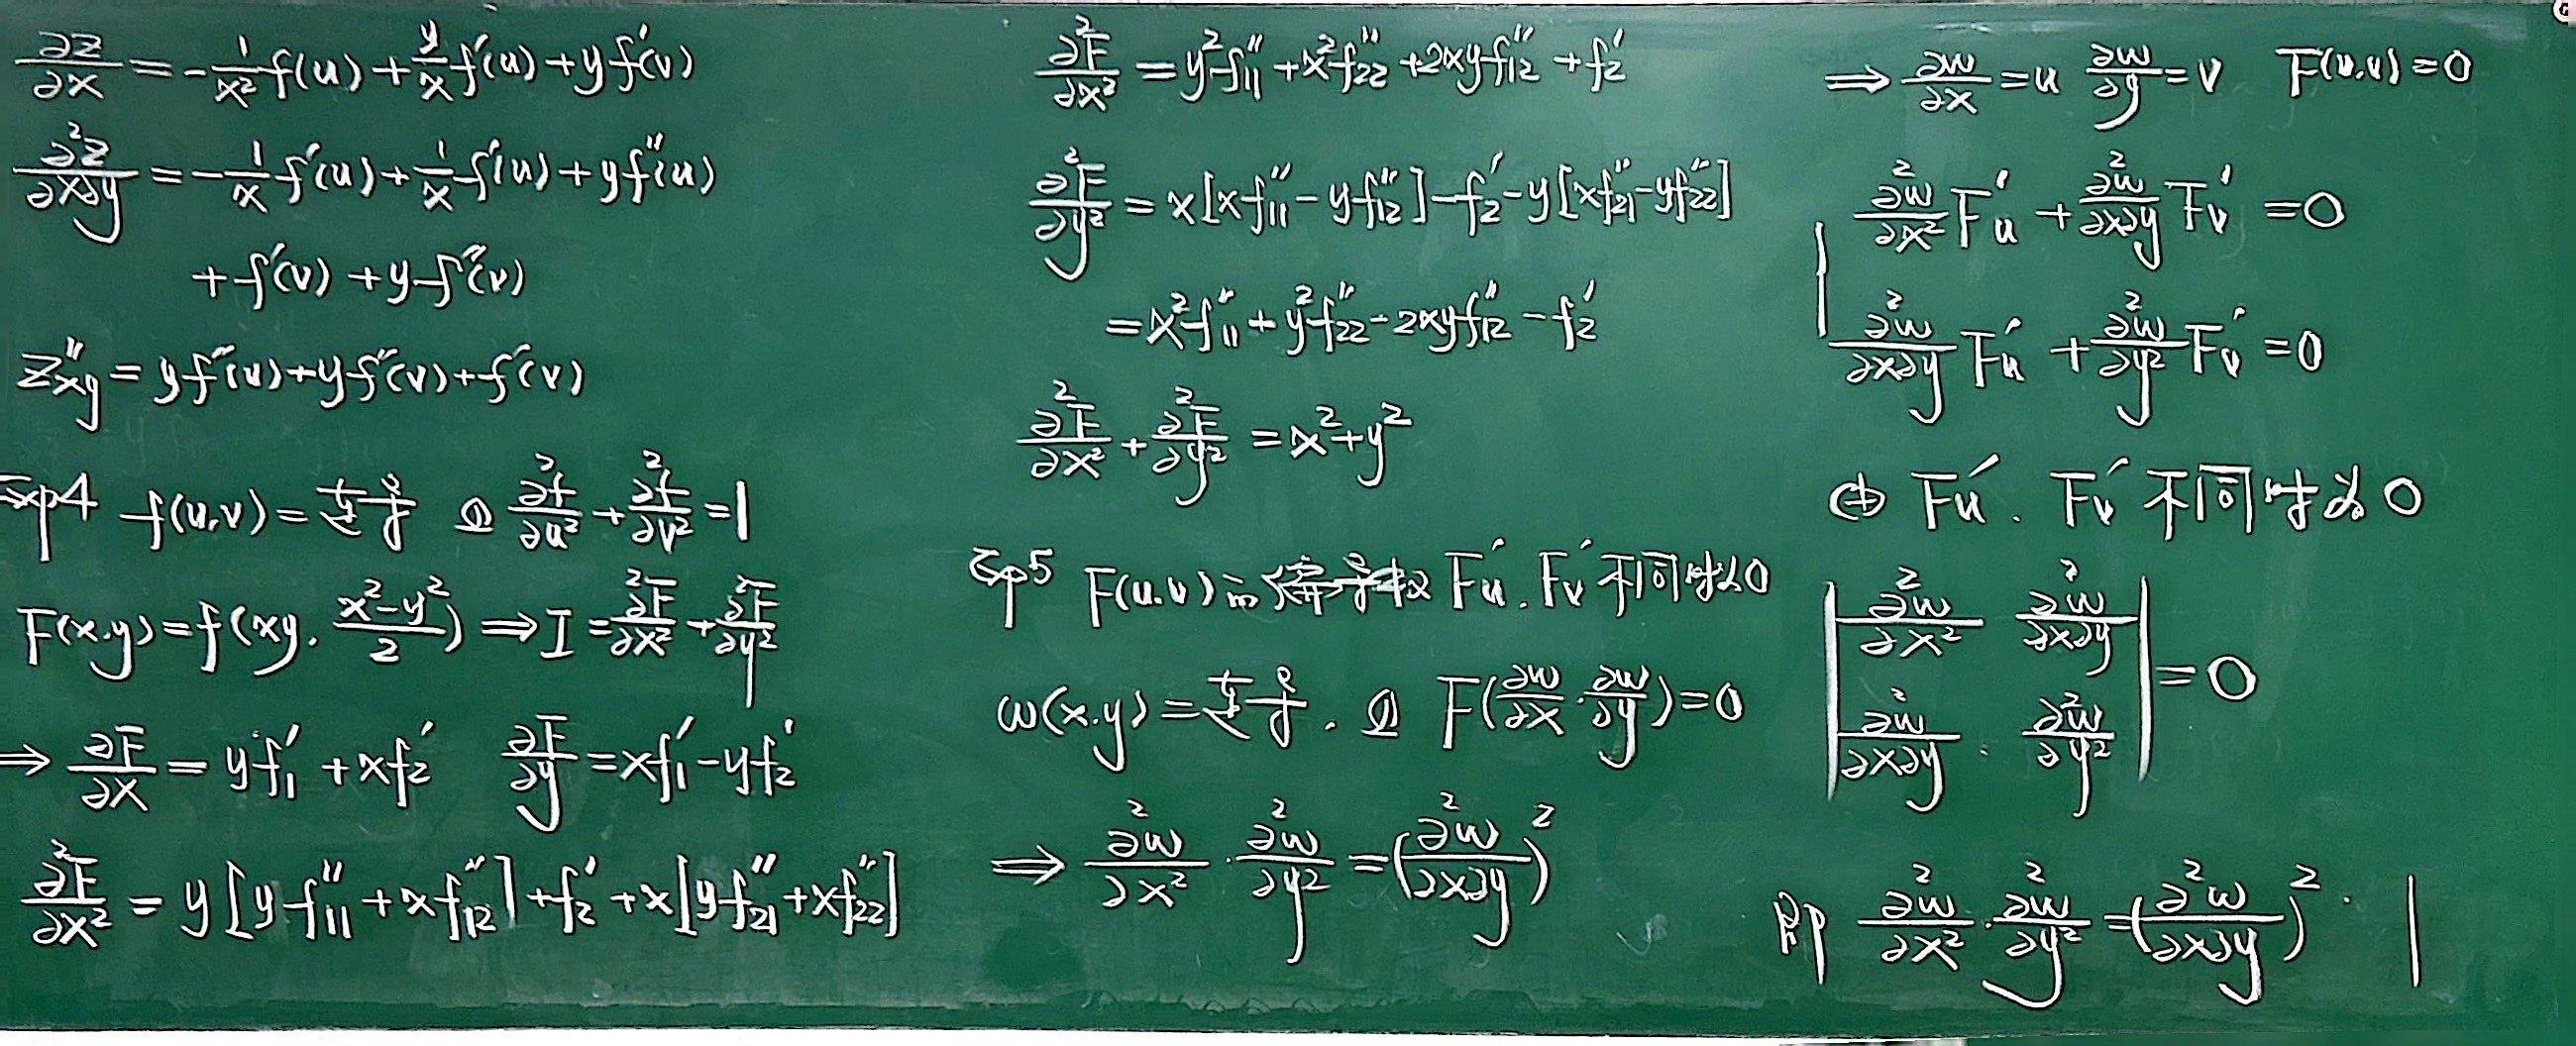 ∂z/∂x = -1/x² f(u) + y/x f'(u) + y f'(v)
∂²z/∂x∂y = -1/x f'(u) + 1/x f'(u) + y f''(u)
+ f'(v) + y f''(v)
z''xy = y f''(u) + y f''(v) + f'(v)
Exp4 f(u,v) = ∂²f/∂u² + ∂²f/∂v² = 1
F(x.y) = f(xy. (x²-y²)/2) ⇒ I = ∂²F/∂x² + ∂²F/∂y²
⇒ ∂F/∂x = y f₁' + x f₂' ∂F/∂y = x f₁' - y f₂'
∂²F/∂x² = y[y f₁₁'' + x f₁₂''] + f₂' + x[y f₂₁'' + x f₂₂'']
∂²F/∂x² = y² f₁₁'' + x² f₂₂'' + 2xy f₁₂'' + f₂'
∂²F/∂y² = x[x f₁₁'' - y f₁₂''] - f₂' - y[x f₂₁'' - y f₂₂'']
= x² f₁₁'' + y² f₂₂'' - 2xy f₁₂'' - f₂'
∂²F/∂x² + ∂²F/∂y² = x² + y²
Exp5 F(u.v) Fu'. Fv' 不同时为0
w(x.y) = . F(∂w/∂x . ∂w/∂y) = 0
⇒ ∂²w/∂x² · ∂²w/∂y² = (∂²w/∂x∂y)²
⇒ ∂w/∂x = u ∂w/∂y = v F(u.v) = 0
∂²w/∂x² Fu' + ∂²w/∂x∂y Fv' = 0
∂²w/∂x∂y Fu' + ∂²w/∂y² Fv' = 0
由 Fu'. Fv' 不同时为0
| ∂²w/∂x² ∂²w/∂x∂y |
| ∂²w/∂x∂y . ∂²w/∂y² | = 0
即 ∂²w/∂x² · ∂²w/∂y² = (∂²w/∂x∂y)² .